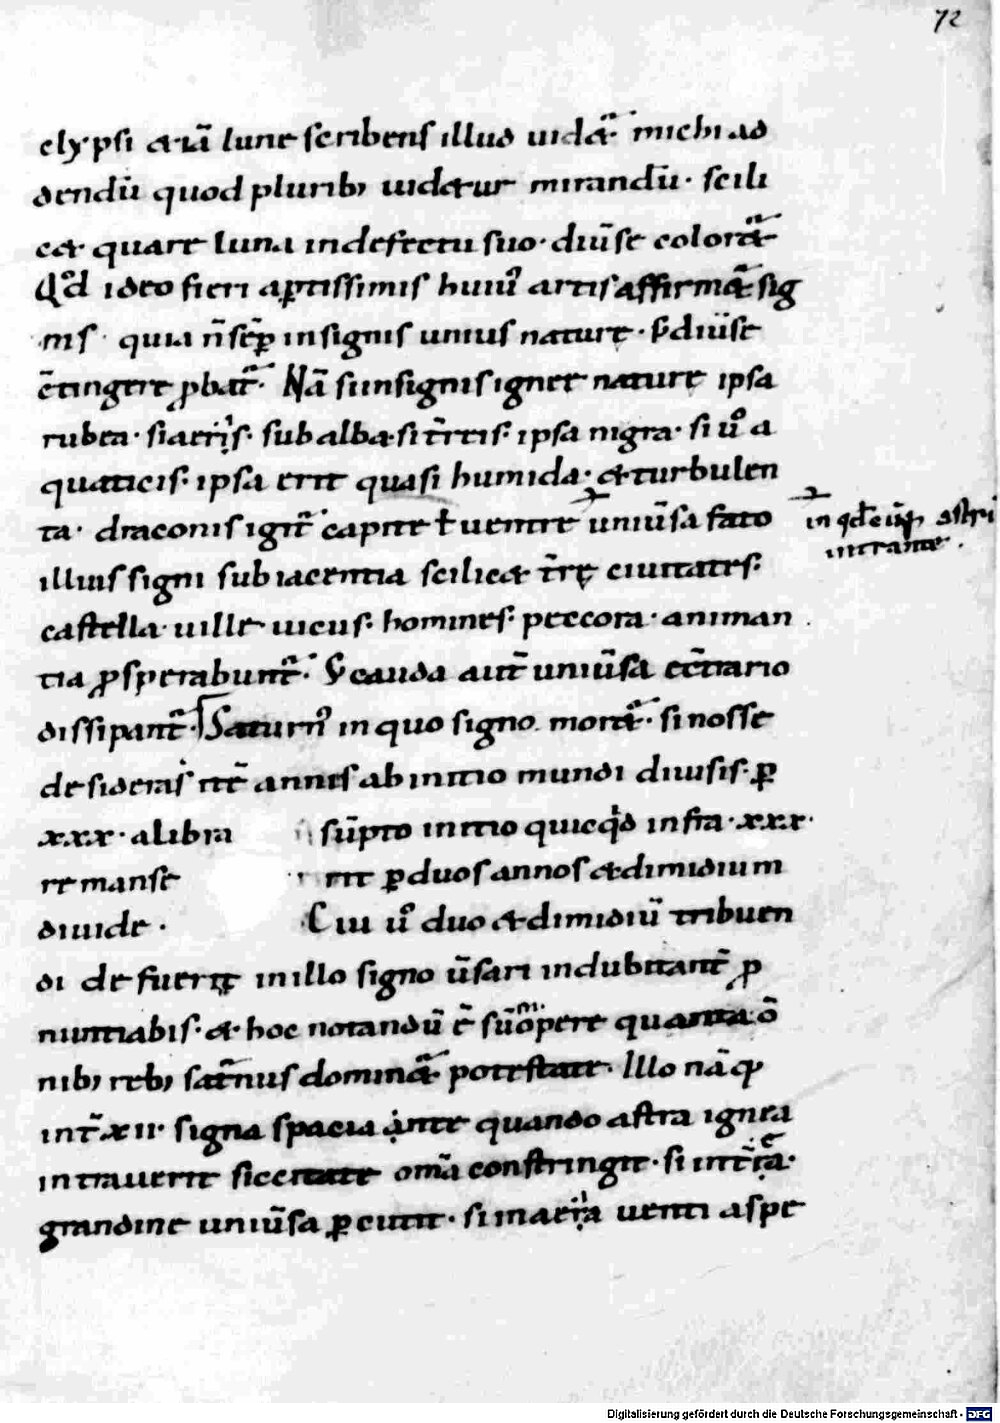 72
clypsi & iā lune scribens illud uid&ur michi ad
dendū quod plurib; uid&ur mirandū· scili
c& quare luna in defectu suo· diūse color&ur
Qd ideo fieri aptissimis hui᾽ artis affirm&ur sig
nis· quia n̄ sēp in signis unius nature· s; diūse
ctingere pbat᾽· Nā si in signis igneę naturę ipsa
rubea· si aeriis· subalba si t̄reis· ipsa nigra· si ůo a
quaticis· ipsa erit quasi humida· & turbulen
ta· draconis igit᾽ capite ł uentre uniūsa fato
in qdcūq; astri
intrante·
illius signi subiacentia scilic& t̄rę ciuitates·
castella· uille· uicus· homines· peccora· animan
tia psperabunt᾽· S; cauda aut̄ uniūsa ec̄trario
dissipant᾽· Saturn᾽ in quo signo mor&ur· si nosse
desideras itē annis ab initio mundi diuisis· p
xxx· a libra sūpto initio quicqd infra· xxx·
remanse rit p duos annos & dimidium
diuide· Cui ůo duo & dimidiū tribuen
di defuerit in illo signo ūsari indubitant̄ p
nuntiabis· & hoc notandū ē sūmopere quanta ō
nib; reb; sat̄nus domin&ur potestate· Illo nāq;
int̄ xii· signa spacia ante quando astra ignea
intrauerit siccitate omā constringit· si int̄
grandine uniūsa pcutit· si in aeria uenti aspe
Digitalisierung gefördert durch die Deutsche Forschungsgemeinschaft - DFG